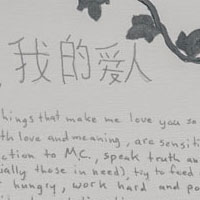 我的爱人
things that make me love you so
th love and meaning, are sensiti
ction to M.C., speak truth an
ually those in need), try to feed
hungry, work hard and po